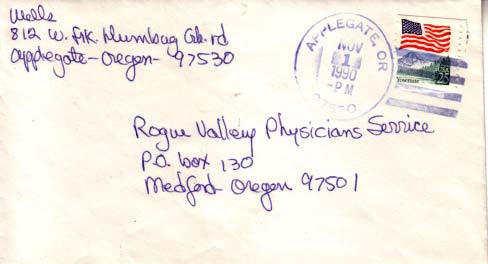 Wells
812 W. frk. Humbug Crk. rd
Applegate-Oregen- 97530
APPLEGATE, OR
NOV
1
1990
-PM
97530
Yosemite
USA
25
Rogue Valley Physicians Service
P.O. box 130
Medford- Oregen 97501